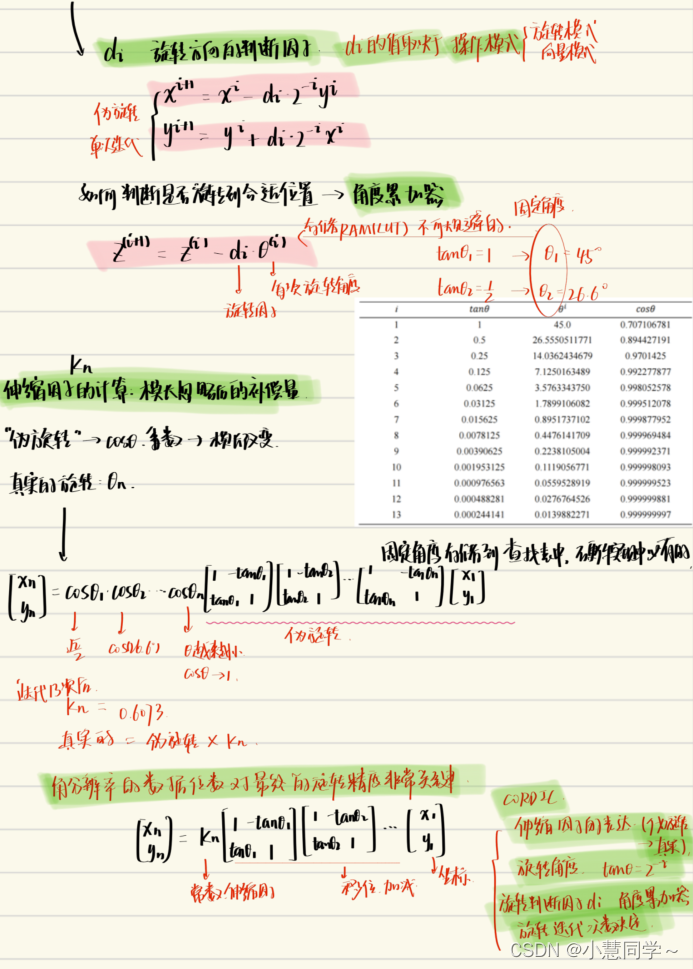 di 旋转方向的判断因子. di的值取决于 操作模式 { 旋转模式
向量模式
伪旋转
单次迭代
x^{i+1} = x^i - di·2^{-i}y^i
y^{i+1} = y^i + di·2^{-i}x^i
如何判断是否旋转到合适位置 → 角度累加器
z^{(i+1)} = z^{(i)} - di·θ^{(i)}
RAM(LUT)
固定角度.
旋转因子
每次旋转角度
tanθ₁ = 1 → θ₁ = 45°
tanθ₂ = 1/2 → θ₂ = 26.6°
i tanθ θ^i cosθ
1 1 45.0 0.707106781
2 0.5 26.5550511771 0.894427191
3 0.25 14.0362434679 0.9701425
4 0.125 7.1250163489 0.992277877
5 0.0625 3.5763343750 0.998052578
6 0.03125 1.7899106082 0.999512078
7 0.015625 0.8951737102 0.999877952
8 0.0078125 0.4476141709 0.999969484
9 0.00390625 0.2238105004 0.999992371
10 0.001953125 0.1119056771 0.999998093
11 0.000976563 0.0559528919 0.999999523
12 0.000488281 0.0276764526 0.999999881
13 0.000244141 0.0139882271 0.999999997
Kn
伸缩因子的计算. 模长
的补偿量
“伪旋转” → cosθ. 常数 → 模长改变.
真实的旋转: θn.
固定角度
查找表中.
[xn yn] = cosθ₁·cosθ₂ ··· cosθn [1 -tanθ₁ tanθ₁ 1] [1 -tanθ₂ tanθ₂ 1] ··· [1 -tanθn tanθn 1] [x₁ y₁]
伪旋转.
√2/2 cos(26.6) θ越来越小
cosθ→1.
迭代13次后.
Kn = 0.6073
真实的 = 伪旋转 × Kn.
角分辨率的数据位数对最终的旋转精度非常关键
[xn yn] = Kn [1 -tanθ₁ tanθ₁ 1] [1 -tanθ₂ tanθ₂ 1] ··· [x₁ y₁]
常数/伸缩因子
移位. 加减
坐标
CORDIC
伸缩因子的表达. (伪旋转
→真实).
旋转角度. tanθ = 2^{-i}
旋转判断因子di 角度累加器
旋转迭代次数决定.
CSDN @小慧同学～